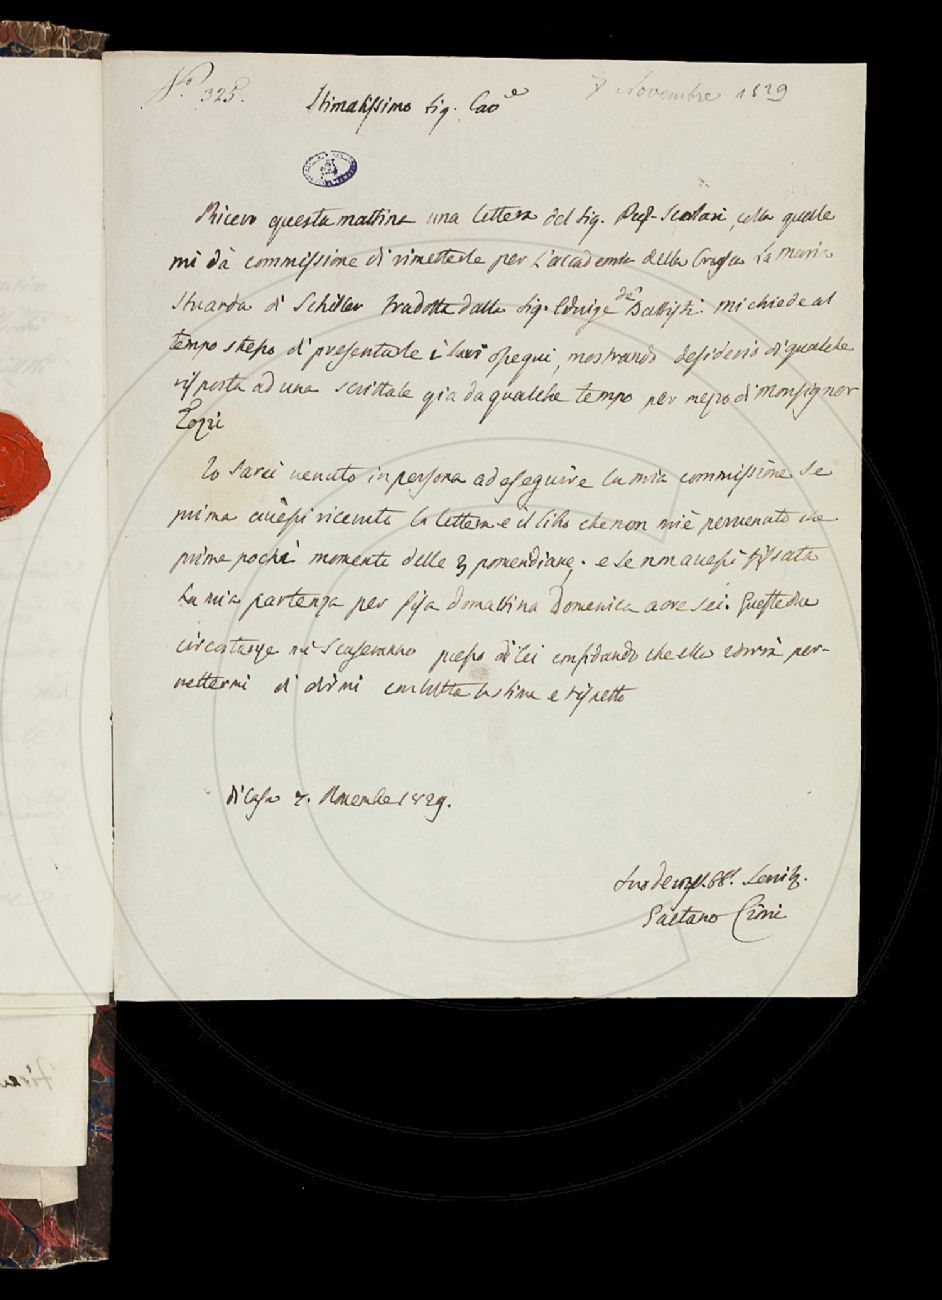 N.° 325.
7 Novembre 1829
Stimatissimo Sig. Cav.e
Ricevo questa mattina una lettera del Sig. Prof. Scolari, colla quale
mi dà commissione di rimetterle per l'accademia della Crusca La Maria
Stuarda di Schiller tradotta dalla Sig. Edvige de' Battisti. mi chiede al
tempo stesso di presentarle i suoi ossequi, mostrando desiderio di qualche
risposta ad una scrittale già da qualche tempo per mezzo di Monsignor
Pozzi
Io sarei venuto in persona ad eseguire la mia commissione se
prima avessi ricevuta la lettera e il libro che non mi è pervenuto che
prima pochi momenti delle 3 pomeridiane. e se non avessi fissata
la mia partenza per Pisa domattina Domenica a ore sei. Queste due
circostanze mi scuseranno presso di lei confidando che ella vorrà per-
mettermi di dirmi con tutta la stima e rispetto
di Casa 7. Novembre 1829.
Suo devmo. obb. Servit.
Gaetano Cioni